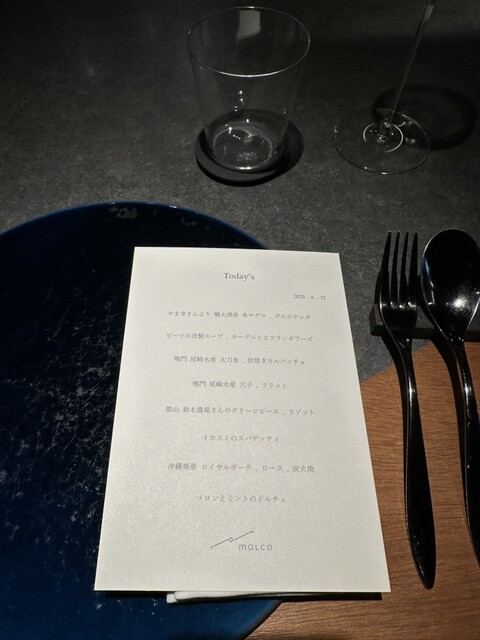 Today's
2025 . 6 . 12
やま幸さんより 噴火湾産 本マグロ , ブルスケッタ
ビーツの冷製スープ , ヨーグルトとフランボワーズ
鳴門 尾崎水産 太刀魚 , 炭焼きカルパッチョ
鳴門 尾崎水産 穴子 , フリット
郡山 鈴木農場さんのグリーンピース , リゾット
イカスミのスパゲッティ
沖縄県産 ロイヤルポーク , ロース , 炭火焼
メロンとミントのドルチェ
malca